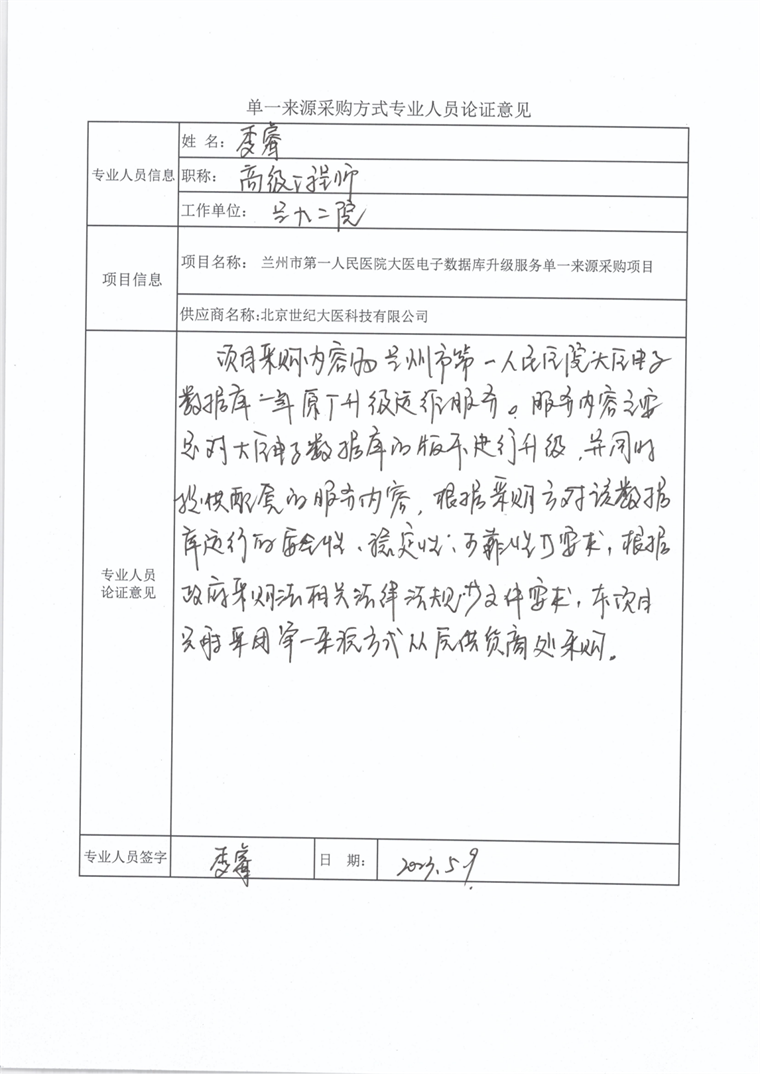 单一来源采购方式专业人员论证意见
专业人员信息
姓 名：李睿
职称：高级工程师
工作单位：兰大二院
项目信息
项目名称：兰州市第一人民医院大医电子数据库升级服务单一来源采购项目
供应商名称:北京世纪大医科技有限公司
专业人员
论证意见
项目采购内容为兰州市第一人民医院大医电子
数据库一年原厂升级运维服务。服务内容主要
是对大医电子数据库的版本进行升级，并同时
提供配套的服务内容，根据采购方对该数据
库运行的安全性、稳定性、可靠性的要求，根据
政府采购法相关法律法规及文件要求，本项目
只能采用单一来源方式从原供货商处采购。
专业人员签字
李睿
日 期：
2023.5.9